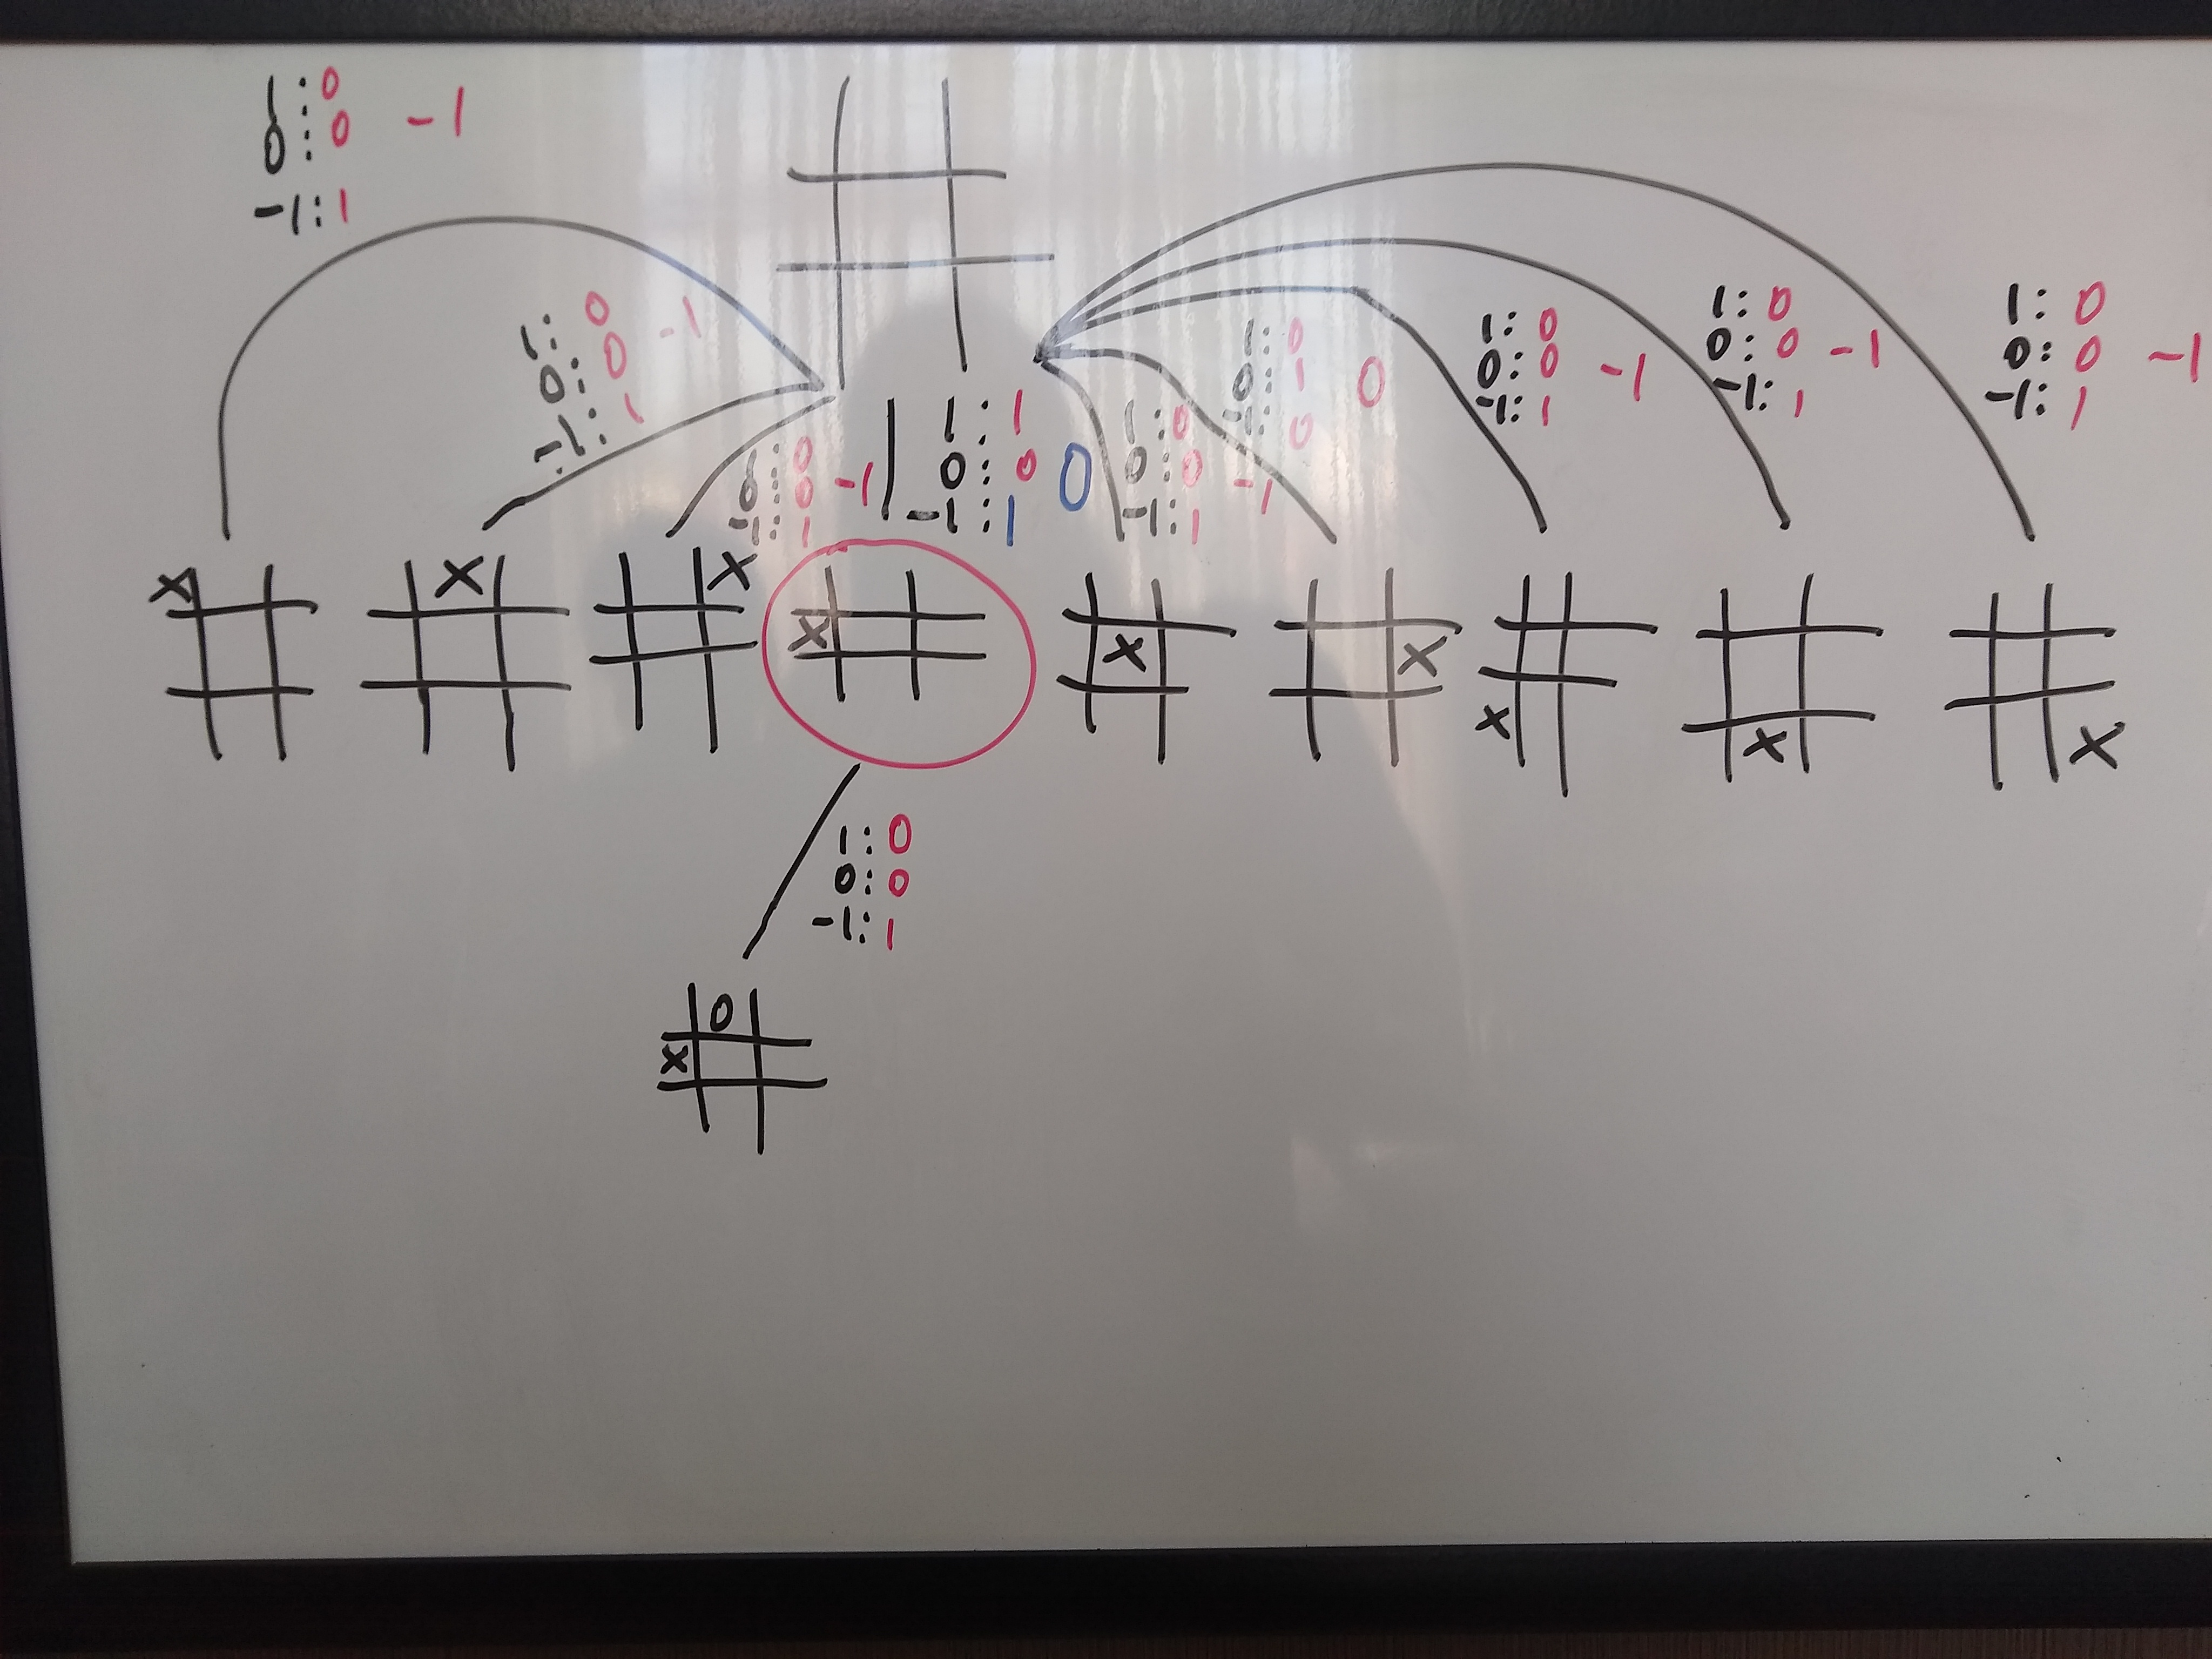 1:0
0:0 -1
-1:1
1:0
0:0 -1
-1:1
1:0
0:0 -1
-1:1
1:1
0:0 0
-1:1
1:0
0:0 -1
-1:1
1:0
0:1 0
-1:0
1:0
0:0 -1
-1:1
1:0
0:0 -1
-1:1
1:0
0:0 -1
-1:1
X
X
X
X
X
X
X
X
X
1:0
0:0
-1:1
O
X